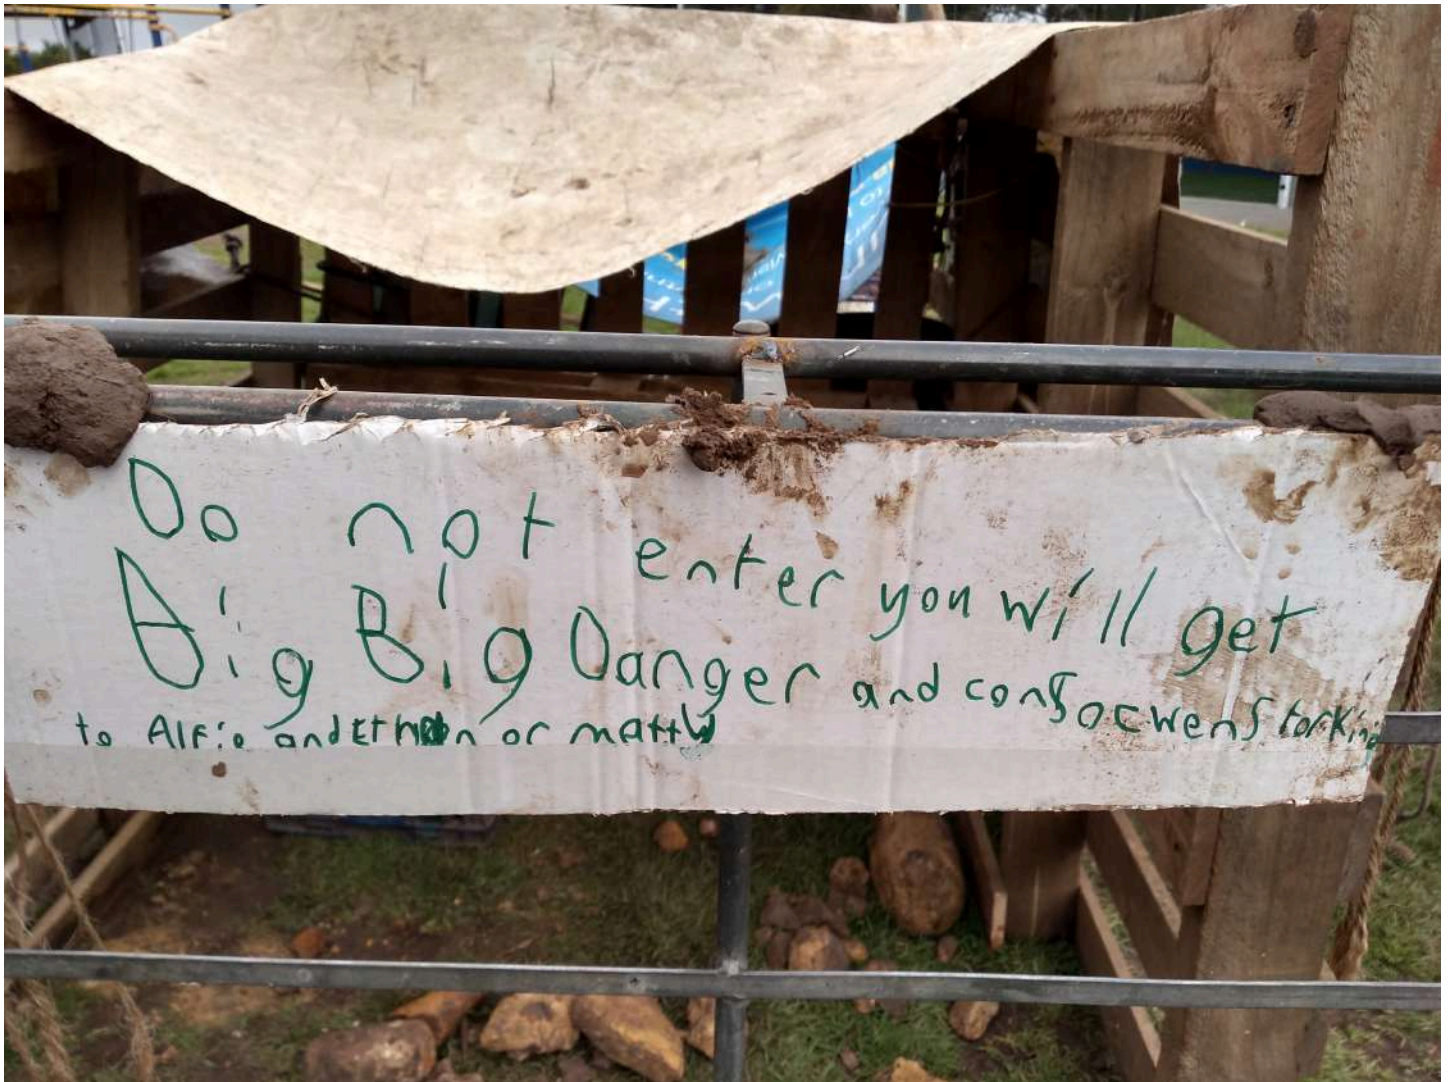 Do not enter you will get
Big Big Danger and consocwens torking
to Alfie and Ethan or mattw